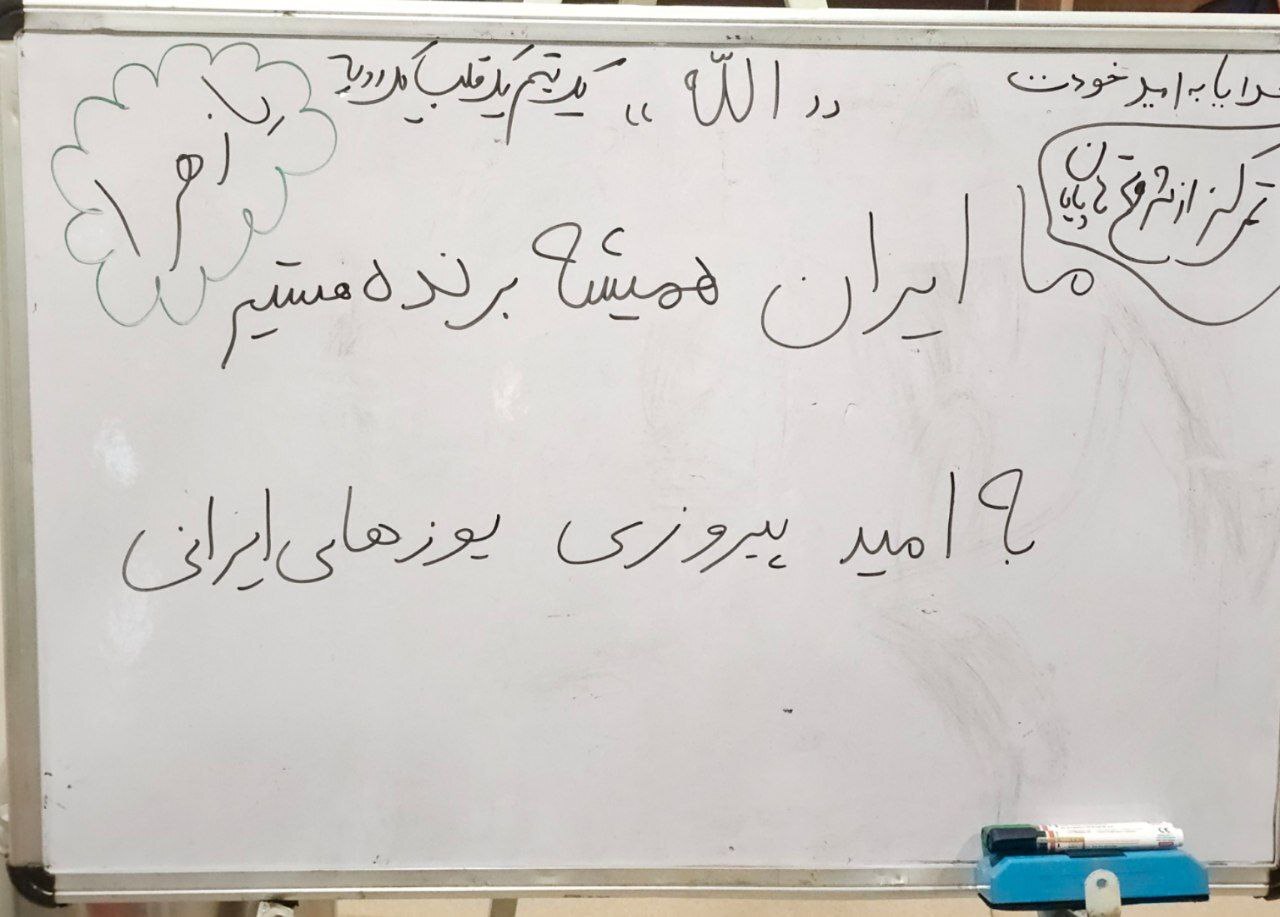 خدایا به امید خودت
«الله»
یک تیم یک قلب یک رویا
یا زهرا
تمرکز از شروع تا پایان
ما ایران همیشه برنده هستیم
به امید پیروزی یوزهای ایرانی